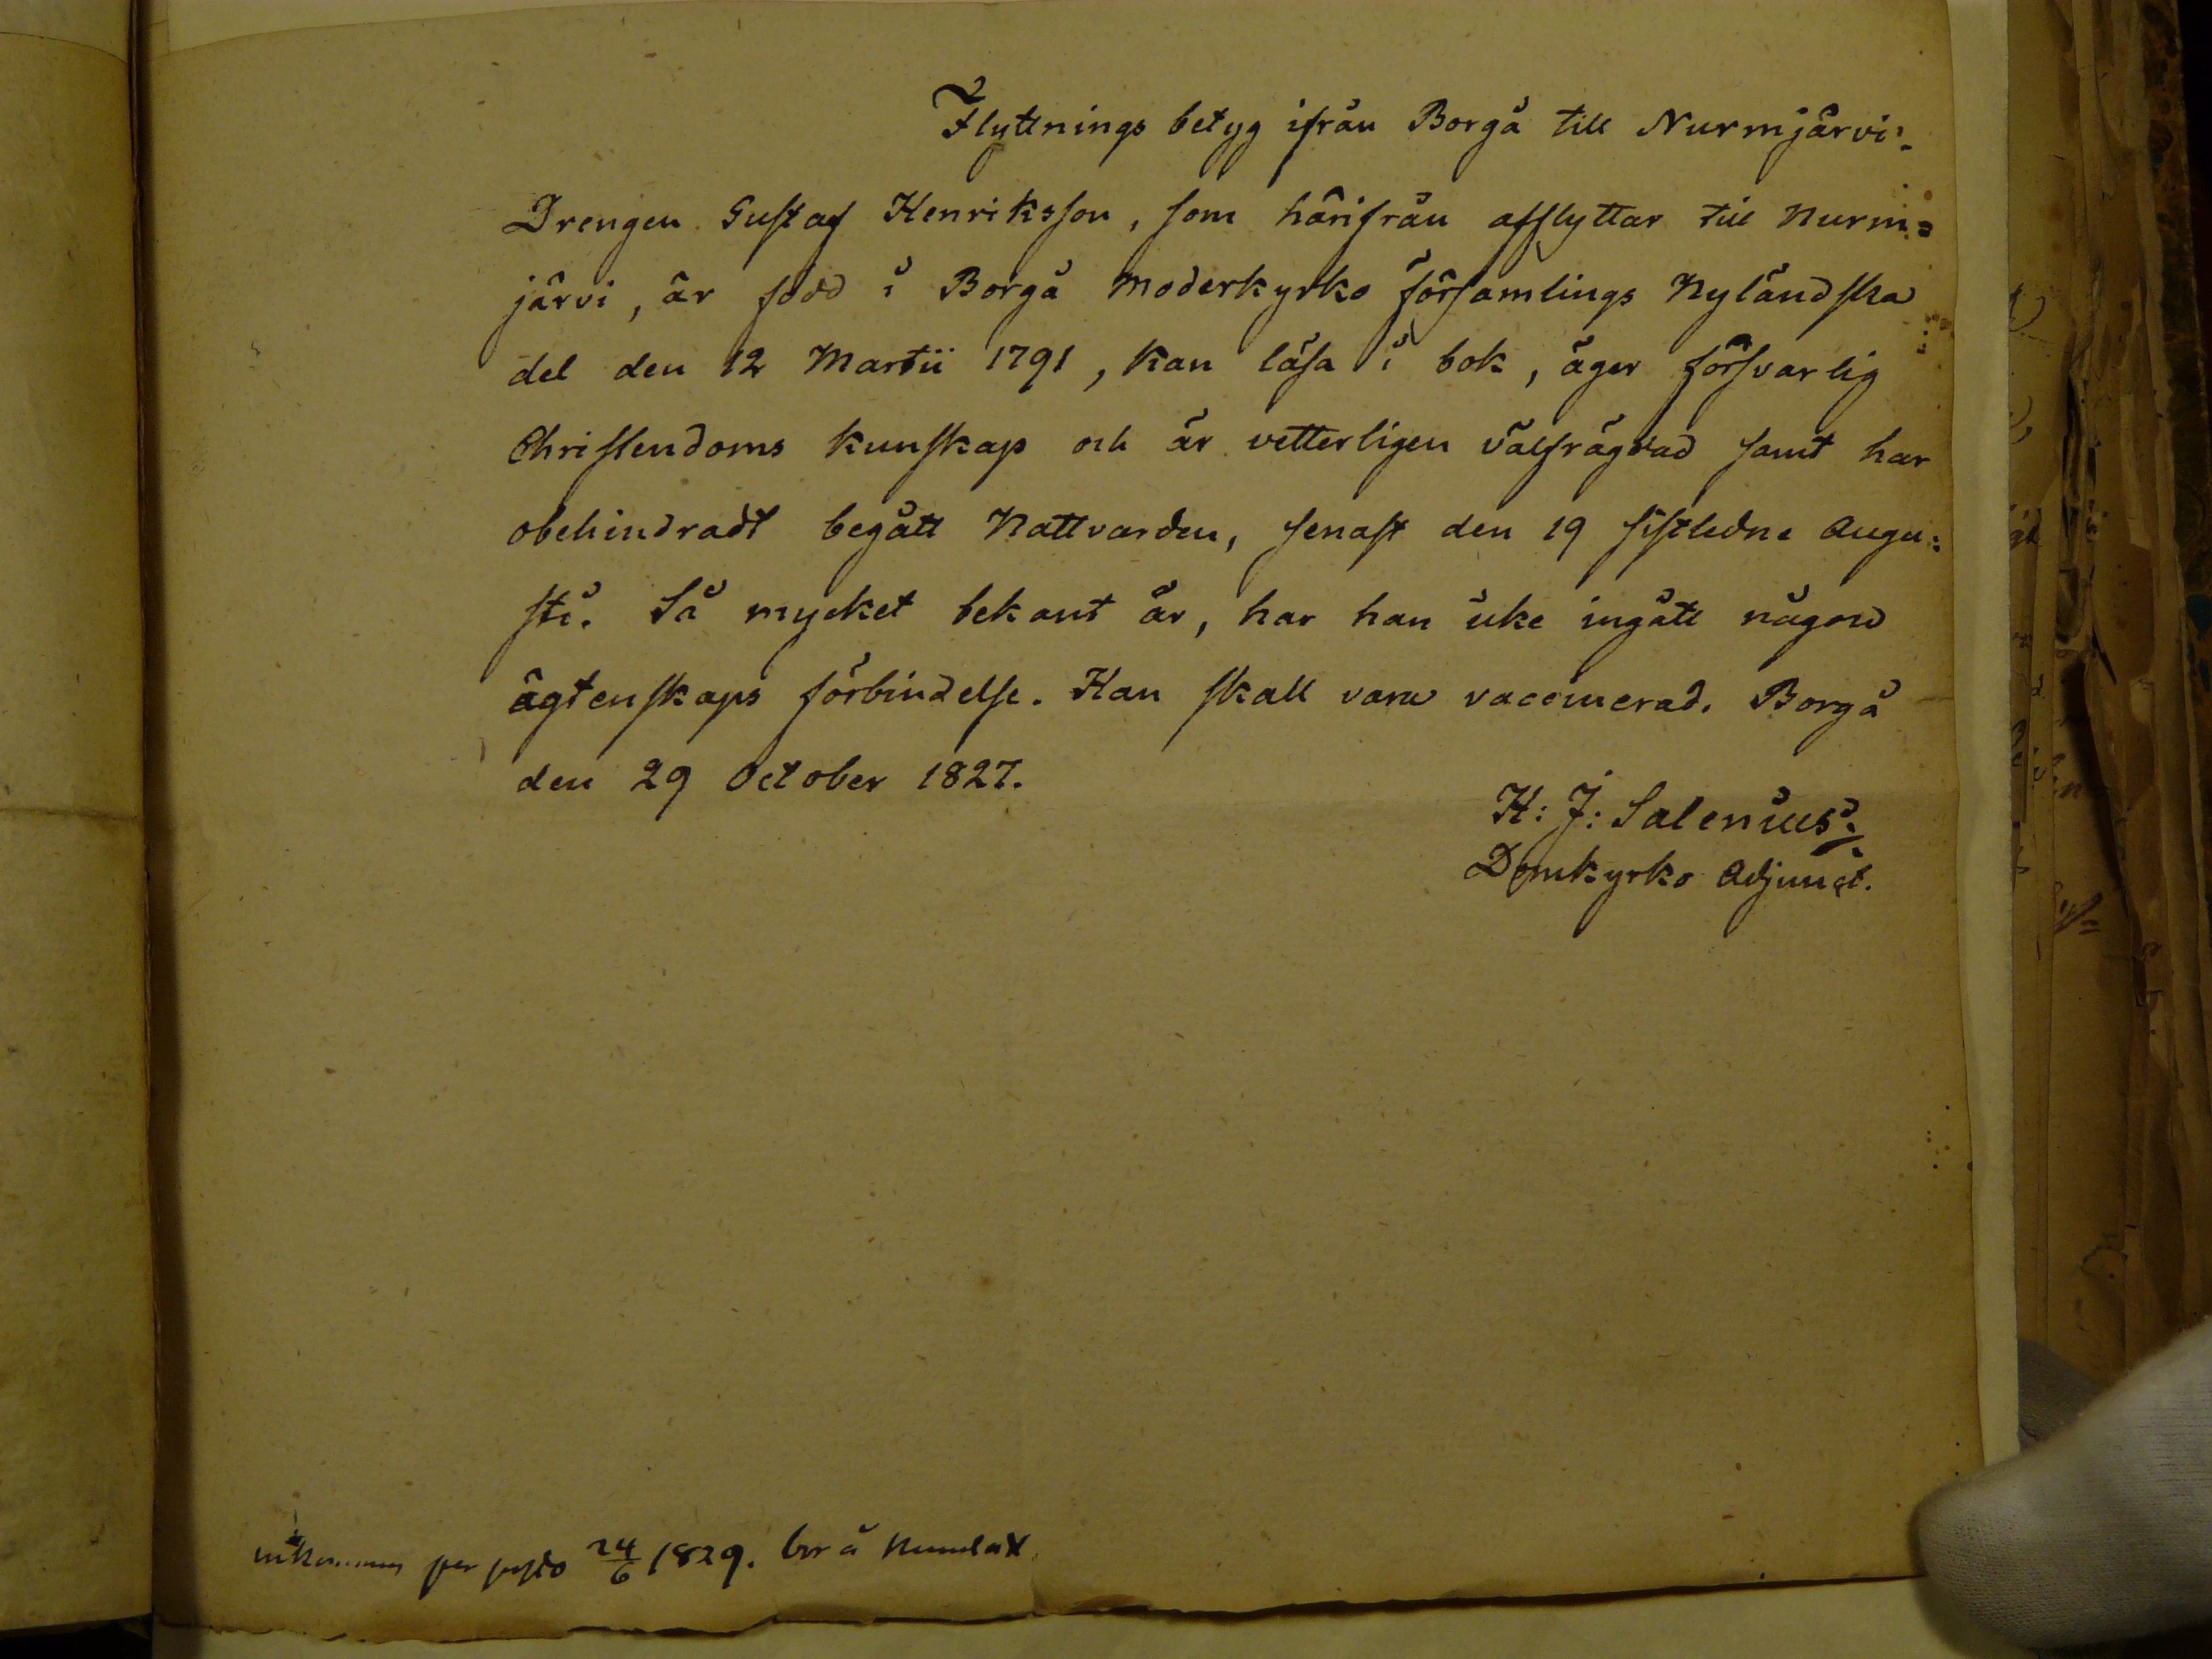 Flyttnings betyg ifrån Borgå till Nurmjärvi.
Drengen Gustaf Henriksson, som härifrån afflyttar till Nurm=
järvi, är född i Borgå Moderkyrko församlings Nyländska
del den 12 Martii 1791, kan läsa i bok, äger försvarlig
Christendoms kunskap och är vetterligen välfrägdad samt har
obehindradt begått Nattvarden, senast den 19 sistledne Augu=
sti. Så mycket bekant är, har han icke ingått någon
ägtenskaps förbindelse. Han skall vara vaccinerad. Borgå
den 29 October 1827.
H: J: Salenius.
Domkyrko Adjunct.
inkommen per posto 24/6 1829. bor å Numlax